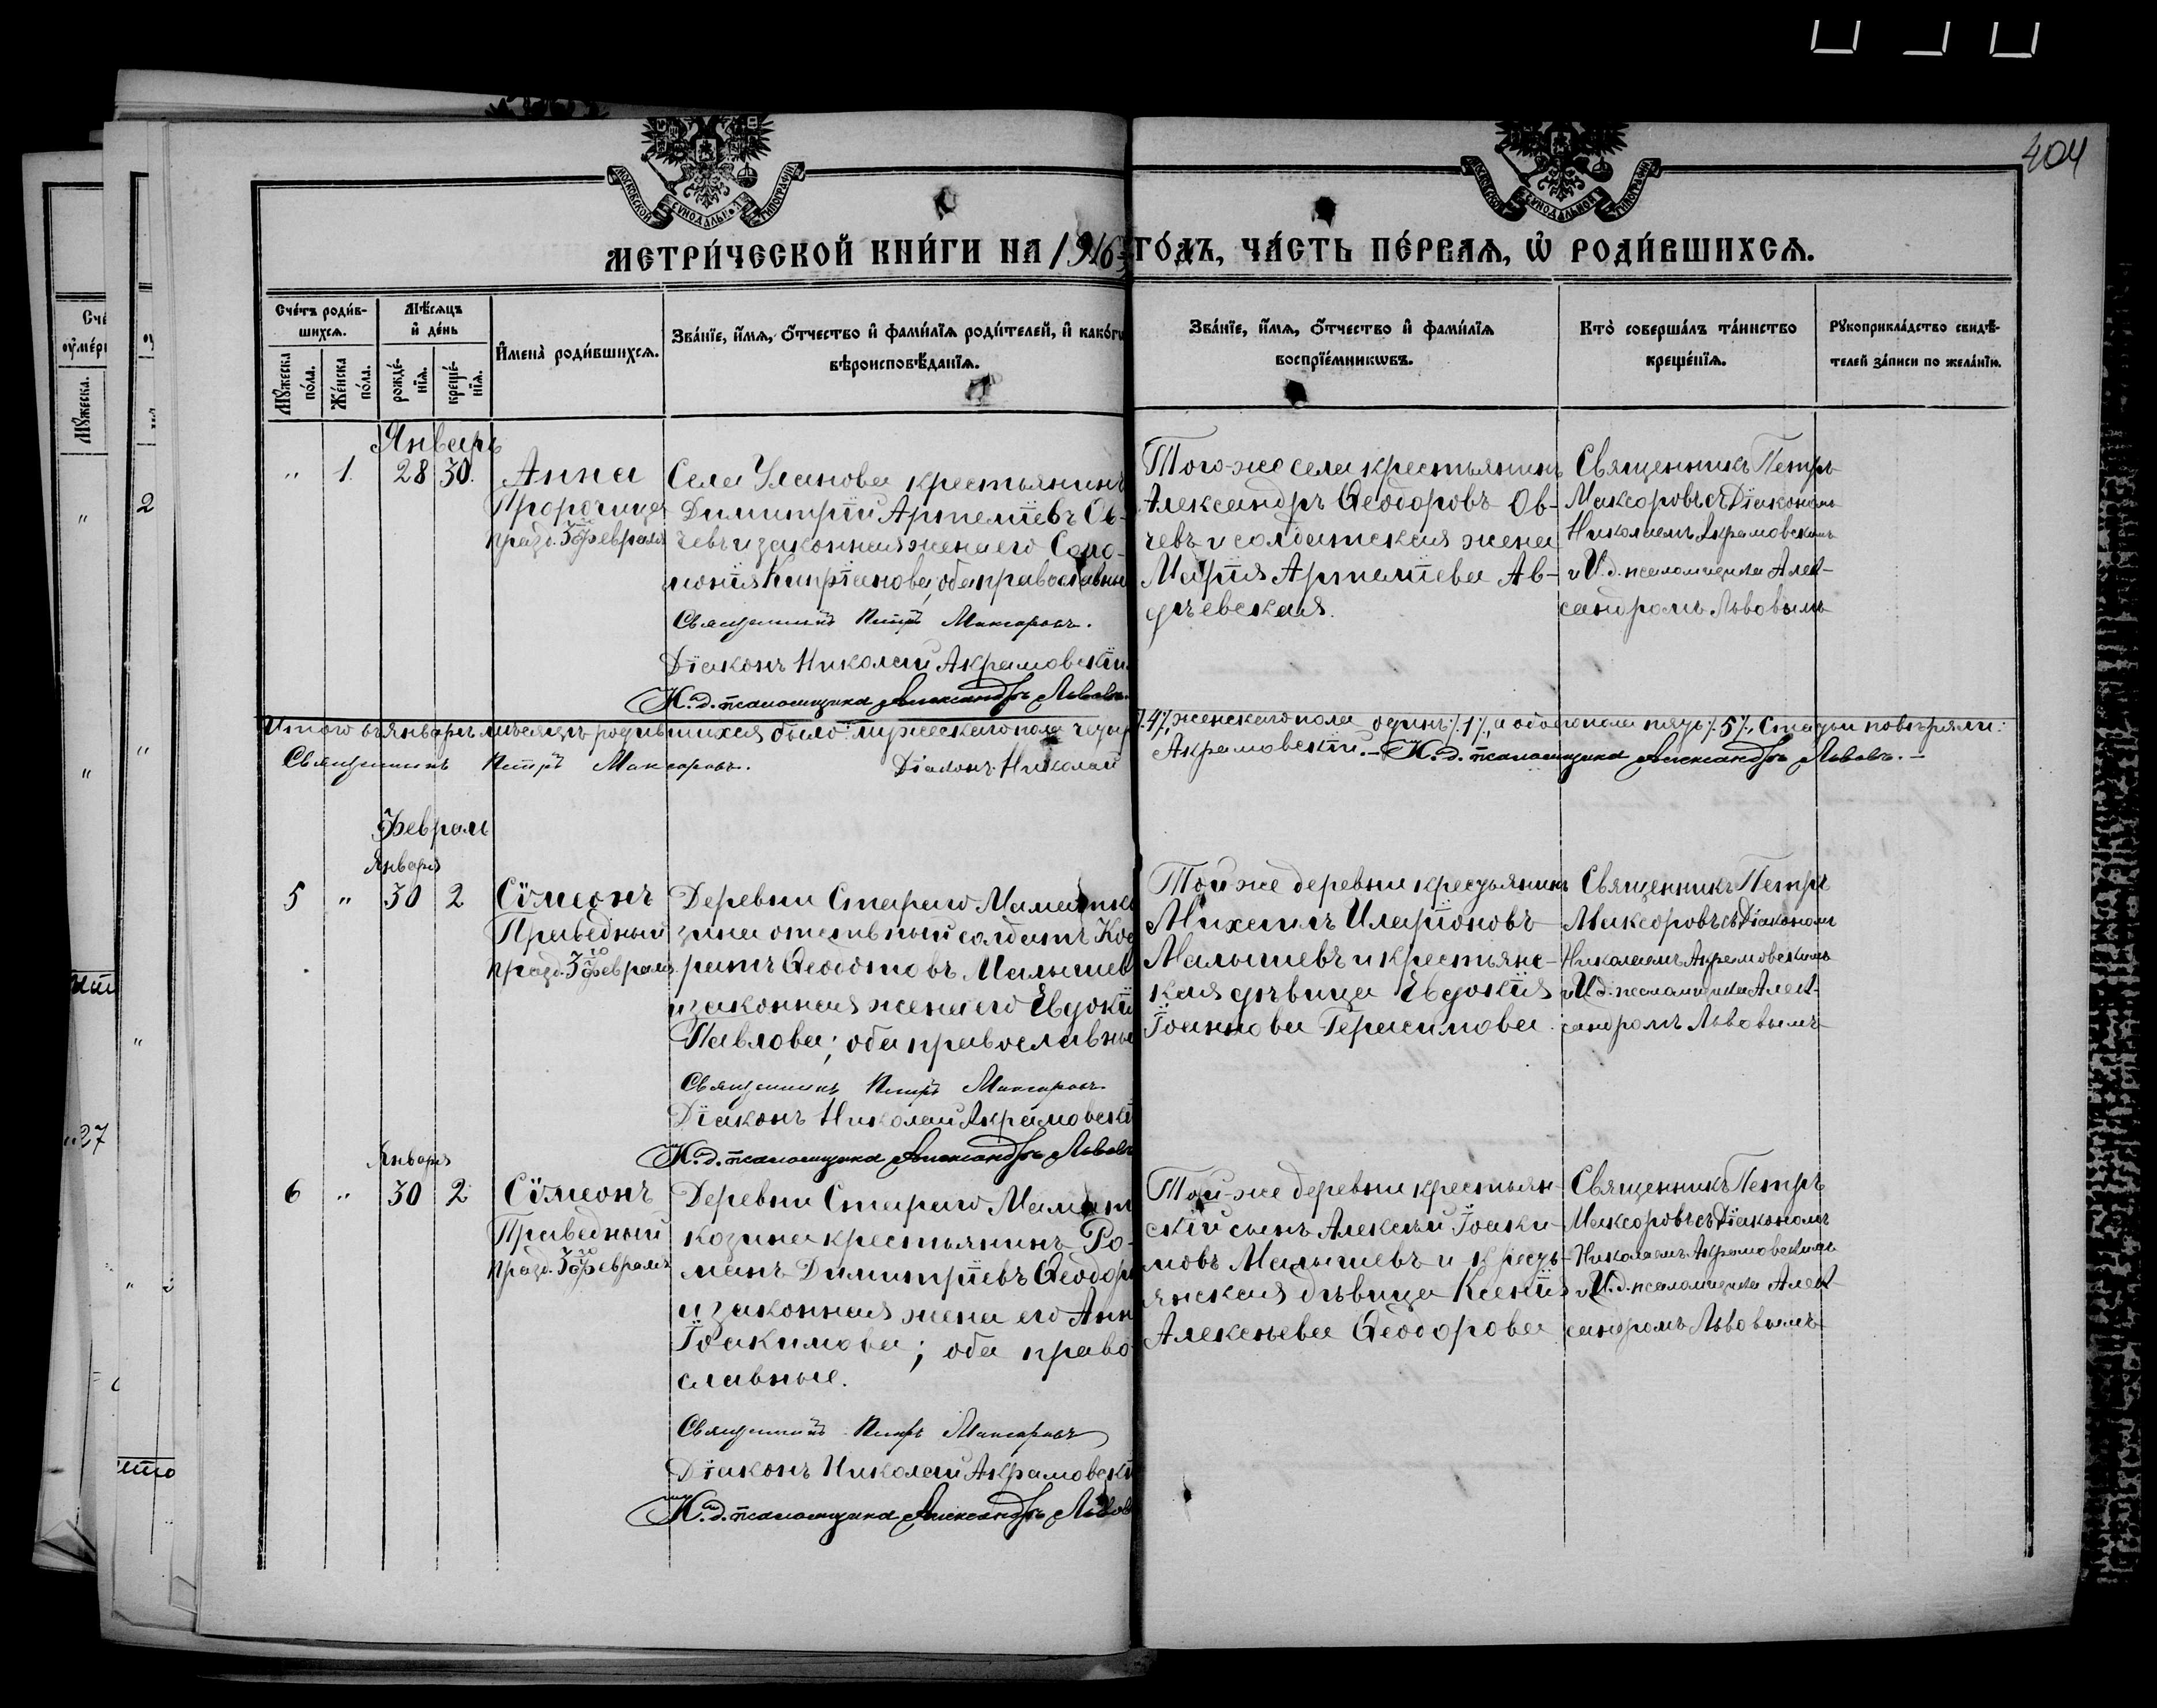 404
МОСКОВСКОЙ СУНОДАЛЬНОЙ ТИПОГРАФІИ
МОСКОВСКОЙ СУНОДАЛЬНОЙ ТИПОГРАФІИ
МЕТРИ́ЧЕСКОЙ КНИ́ГИ НА 1916 ГО́ДЪ, ЧА́СТЬ ПЕ́РВАѦ, Ѡ҆ РОДИ́ВШИХСѦ.
Сче́тъ роди́в-
шихсѧ.
Мꙋ́жеска по́ла.
Же́нска по́ла.
Мѣ́сѧцъ
и҆ де́нь
рожде́-
нїѧ.
креще́-
нїѧ.
И҆мена̀ роди́вшихсѧ.
Зва́нїе, и҆́мѧ, ѻ҆́тчество и҆ фами́лїѧ роди́телей, и҆ како́гѡ
вѣроисповѣ́данїѧ.
Зва́нїе, и҆́мѧ, ѻ҆́тчество и҆ фами́лїѧ
воспрїе́мникѡвъ.
Кто̀ соверша́лъ та́инство
креще́нїѧ.
Рꙋкоприкла́дство свидѣ́-
телей за́писи по жела́нїю.
Январь
" 1. 28 30.
Анна
Пророчица
празд. 3го февраля
Села Уланова крестьянинъ
Димитрій Артеміевъ Ов-
чевъ и законная жена его Соло-
монія Кипріанова; оба православны
Священникъ Петръ Максоровъ.
Діаконъ Николай Акрамовскій.
И. д. псаломщика Александръ Львовъ.
Того-же села крестьянинъ
Александръ Ѳеодоровъ Ов-
чевъ и солдатская жена
Марія Артеміева Ав-
дѣевская.
Священникъ Петръ
Максоровъ съ Діакономъ
Николаемъ Акрамовскимъ
и И. д. псаломщика Алек-
сандромъ Львовымъ
Итого въ январѣ мѣсяцѣ родившихся было: мужескаго пола четыр /.4/., женскаго пола один /.1/., а обоего пола пять /.5/. Статьи повѣряли:
Священникъ Петръ Максоровъ. Діаконъ Николай Акрамовскій. – И. д. псаломщика Александръ Львовъ. –
Февраль
Января
5 " 30 2
Сѵмеонъ
Праведный
празд. 3го февраля.
Деревни Стараго Маматко
зина отставный солдатъ Код
ратъ Ѳеодотовъ Малышев
и законная жена его Евдокі
Павлова; оба православны
Священникъ Петръ Максоровъ
Діаконъ Николай Акрамовскі
И. д. псаломщика Александръ Львовъ
Той же деревни крестьянин
Михаилъ Иларіоновъ
Малышевъ и крестьянс-
кая дѣвица Евдокія
Іоаннова Герасимова.
Священникъ Петръ
Максоровъ съ Діакономъ
Николаемъ Акрамовскимъ
и И. д. псаломщика Алек-
сандромъ Львовымъ
Января
6 " 30 2
Сѵмеонъ
Праведный
празд. 3го февраля
Деревни Стараго Мамат
козина крестьянинъ Ро-
манъ Димитріевъ Ѳеодор
и законная жена его Анн
Іоакимова; оба право-
славные.
Священникъ Петръ Максоровъ
Діаконъ Николай Акрамовскі
И. д. псаломщика Александръ Львов
Той-же деревни крестьян-
скій сынъ Алексѣй Іоаки-
мовъ Малышевъ и кресть-
янская дѣвица Ксенія
Алексѣева Ѳеодорова
Священникъ Петръ
Максоровъ съ Діакономъ
Николаемъ Акрамовскимъ
и И. д. псаломщика Алек-
сандромъ Львовымъ